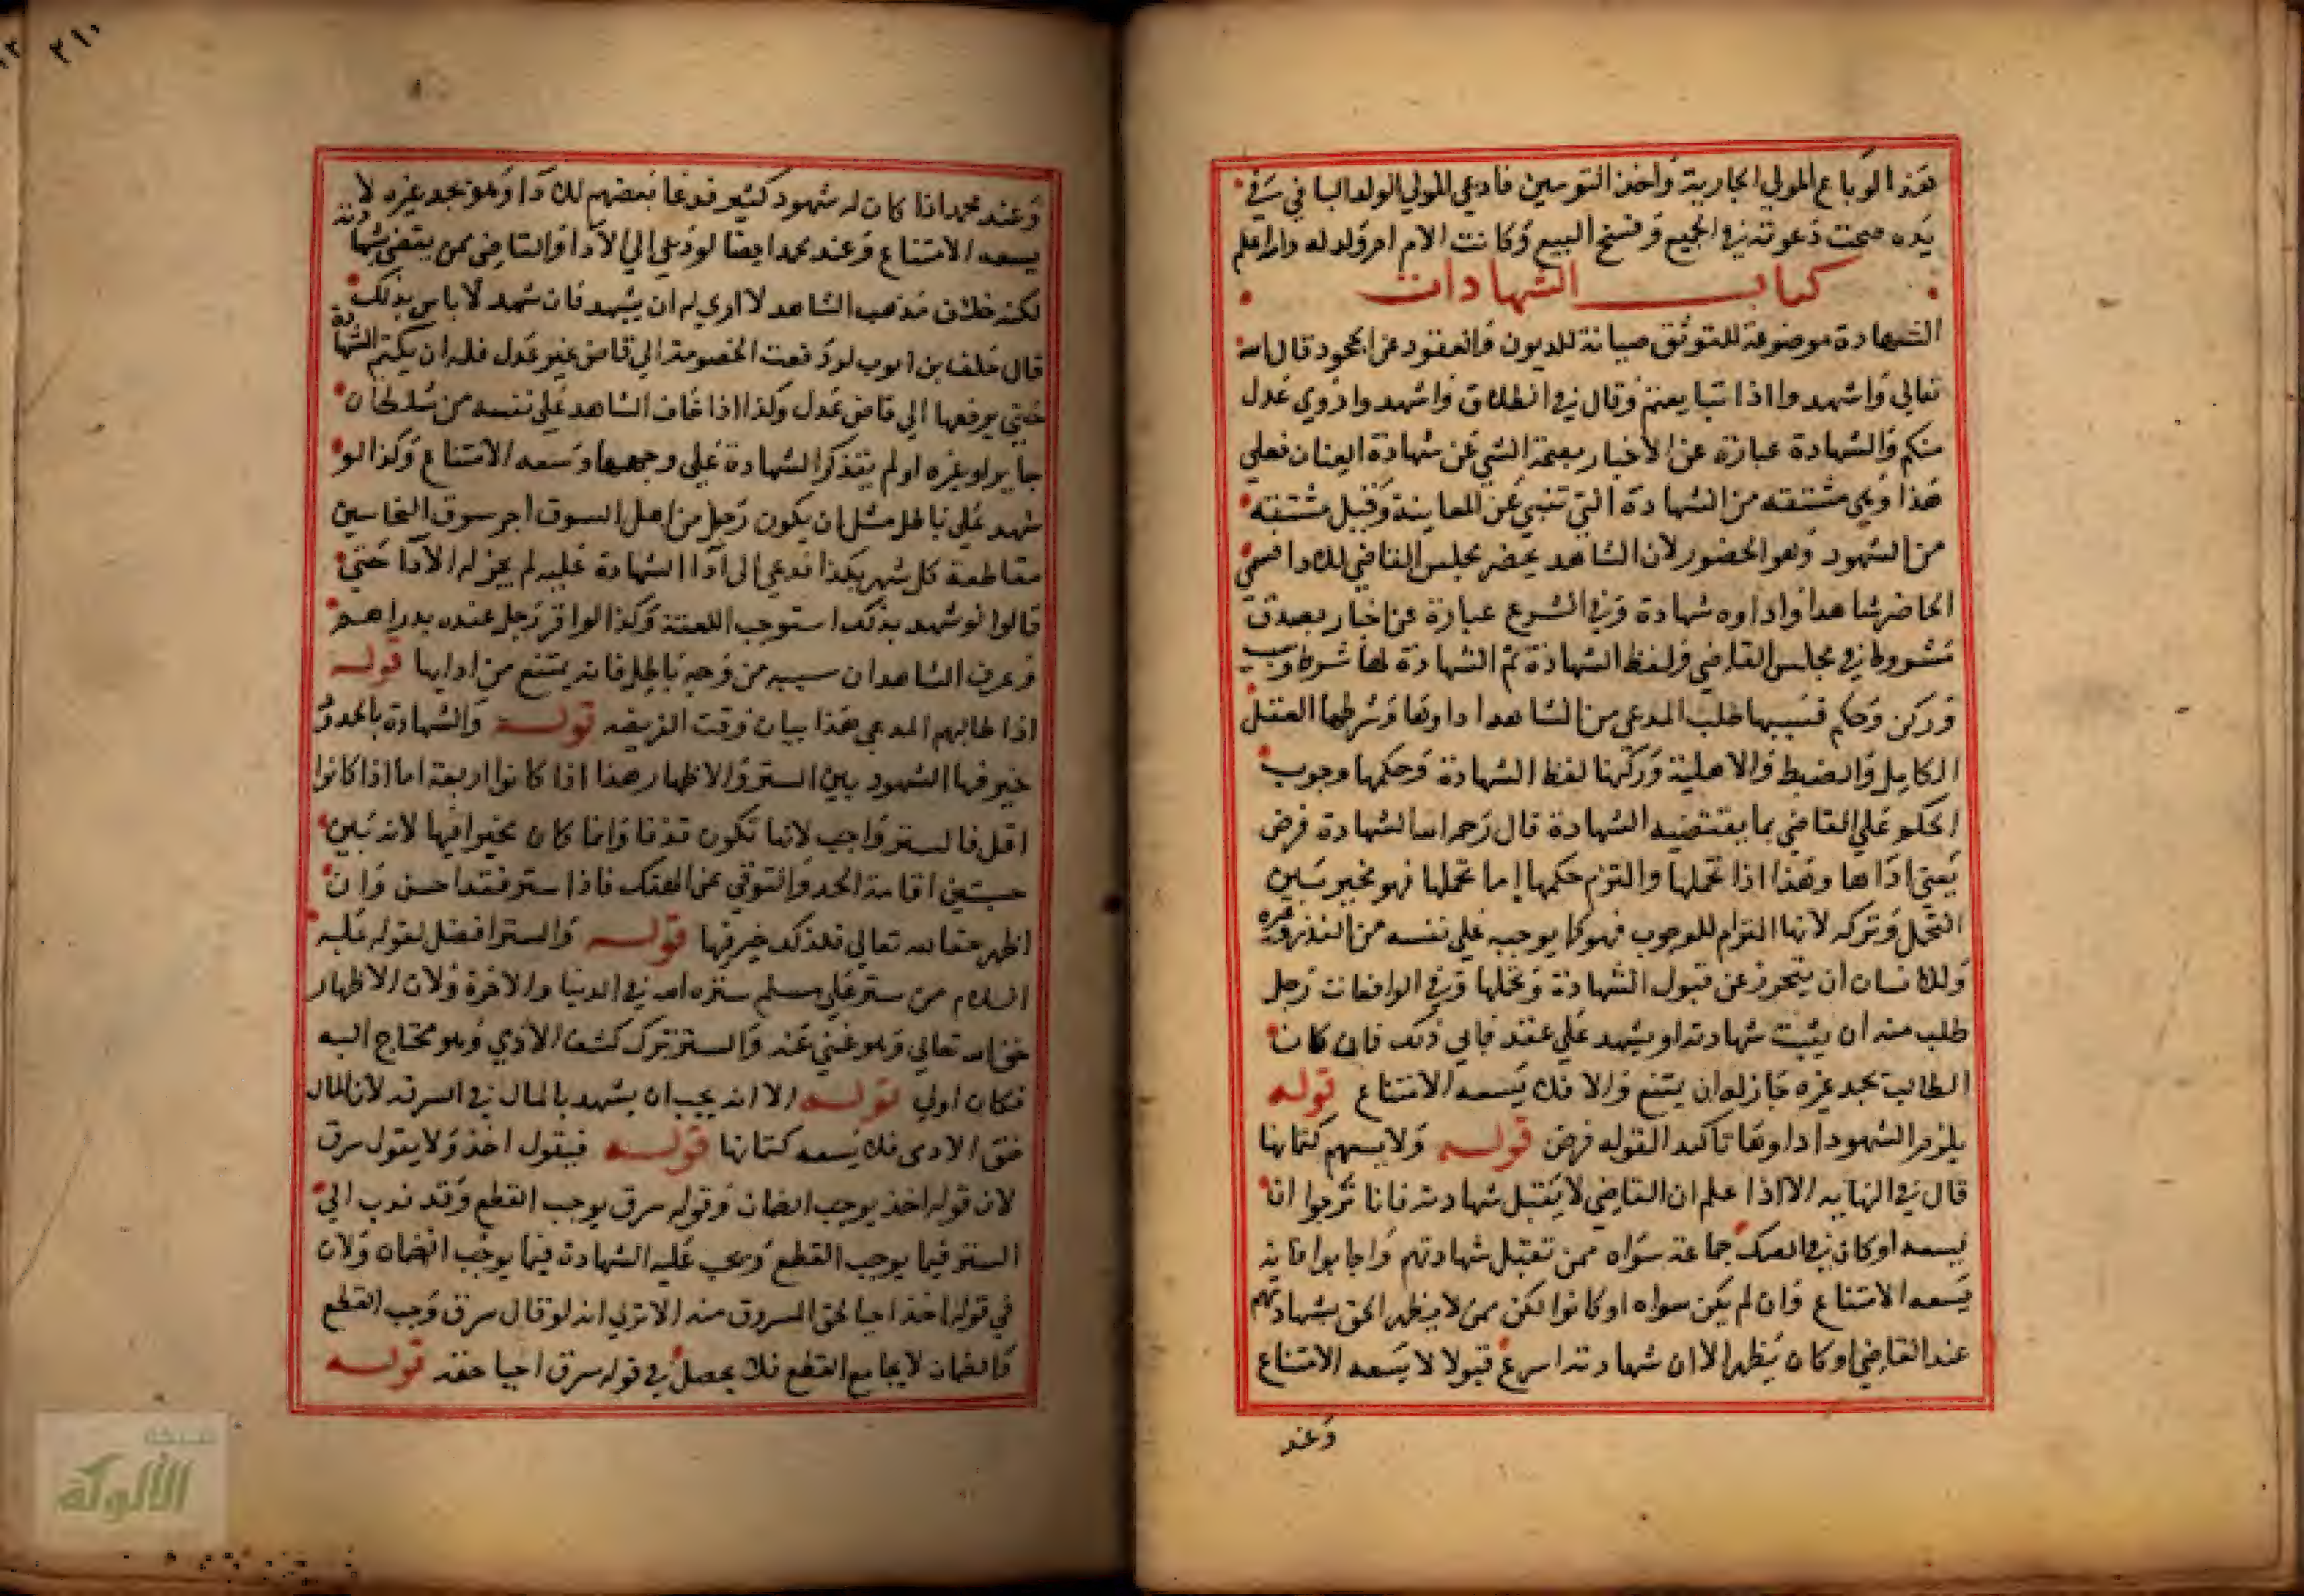 هذا لو باع المولي الجارية واحد التوءمين فادعي المولي الولد الباقي في
يده صحت دعوته في الجميع وفسخ البيع وكانت الام ام ولد له والله اعلم
كتاب الشهادات
الشهادة موضوعة للتوثق صيانة للديون والعقود عن الجحود قال الله
تعالي واشهدوا اذا تبايعتم وقال في الطلاق واشهدوا ذوي عدل
منكم والشهادة عبارة عن الاخبار بصحة الشي عن شهادة العيان فعلي
هذا وهي مشتقه من الشهادة التي تنبي عن المعاينة وقيل مشتقه
من الشهود وهو الحضور لان الشاهد يحضر مجلس القاضي للادا فسمي
الحاضر شاهدا واداوه شهادة وفي الشرع عبارة عن اخبار بصدق
مشروط في مجلس القاضي ولفظ الشهادة ثم الشهادة لها شرط وسبب
وركن وحكم فسببها طلب المدعي من الشاهد اداوها وشرطها العقل
الكامل والضبط والاهلية وركنها لفظ الشهادة وحكمها وجوب
الحكم علي القاضي بما يقتضيه الشهادة قال رحمه الله الشهادة فرض
يعني اداها وهذا اذا تحملها والتزم حكمها اما تحملها فهو مخير بين
التحمل وتركه لانها التزام للوجوب فهو كما يوجبه علي نفسه من النذر وغيره
وللانسان ان يتحرز عن قبول الشهادة وتحملها وفي الواقعات رجل
طلب منه ان يثبت شهادته او يشهد علي عقد فابي ذلك فان كان
الطالب يجد غيره جاز له ان يمتنع والا فلا يسعه الامتناع قوله
يلزم الشهود اداوها تاكيد القوله فرض قوله ولا يسعهم كتمانها
قال في النهايه الا اذا علم ان القاضي لا يقبل شهادته فانا نرجوا ان
يسعه او كان في الصك جماعة سواه ممن تقبل شهادتهم واجابوا فانه
يسعه الامتناع وان لم يكن سواه او كانوا لكن ممن لا يظهر الحق بشهادتهم
عند القاضي او كان يظهر الا ان شهادته اسرع قبولا لا يسعه الامتناع
وعند
٢١٠
وعند محمد اذا كان له شهود كثير فدعا بعضهم للادا وهو يجد غيره لا
يسعه الامتناع وعند محمد ايضا لو دعي الي الادا والقاضي ممن يقضي بشهادته
لكنه خلاف مذهب الشاهد لا اري له ان يشهد فان شهد لا باس بذلك
قال خلف بن ايوب لو رفعت الخصومة الي قاض غير عدل فله ان يكتم الشهادة
حتي يرفعها الي قاض عدل وكذا اذا خاف الشاهد علي نفسه من سلطان
جاير او غيره او لم يتذكر الشهادة علي وجهها وسعه الامتناع وكذا لو
شهد علي باطل مثل ان يكون رجل من اهل السوق اجر سوق النخاسين
مقاطعة كل شهر بكذا فدعي الي ادا الشهادة عليه لم يجز له الادا حتي
قالوا لو شهد بذلك استوجب اللعنة وكذا لو اقر رجل عنده بدراهم
وعرف الشاهد ان سببه من وجه باطل فانه يمتنع من ادايها قوله
اذا طالبهم المدعي هذا بيان وقت الفريضه قوله والشهادة بالحدود
خير فيها الشهود بين الستر والاظهار هذا اذا كانوا اربعة اما اذا كانوا
اقل فالستر واجب لانها تكون قذفا وانما كان مخيرا فيها لانه بين
حسبتين اقامة الحد والتوقي عن الهتك فاذا ستر فقد احسن وان
اظهر حقا لله تعالي فلذلك خير فيها قوله والستر افضل لقوله عليه
السلام من ستر علي مسلم ستره الله في الدنيا والاخرة ولان الاظهار
حق الله تعالي وهو غني عنه والستر ترك كشف الادمي وهو محتاج اليه
فكان اولي قوله الا انه يجب ان يشهد بالمال في السرقه لان المال
حق الادمي فلا يسعه كتمانها قوله فيقول اخذ ولا يقول سرق
لان قوله اخذ يوجب الضمان وقوله سرق يوجب القطع وقد ندب الي
الستر فيما يوجب القطع ويجب عليه الشهادة فيما يوجب الضمان ولان
في قوله اخذ احيا لحق المسروق منه الا تري انه لو قال سرق وجب القطع
والضمان لا يجامع القطع فلا يحصل في قوله سرق احيا حقه قوله
شبكة
الألوكة